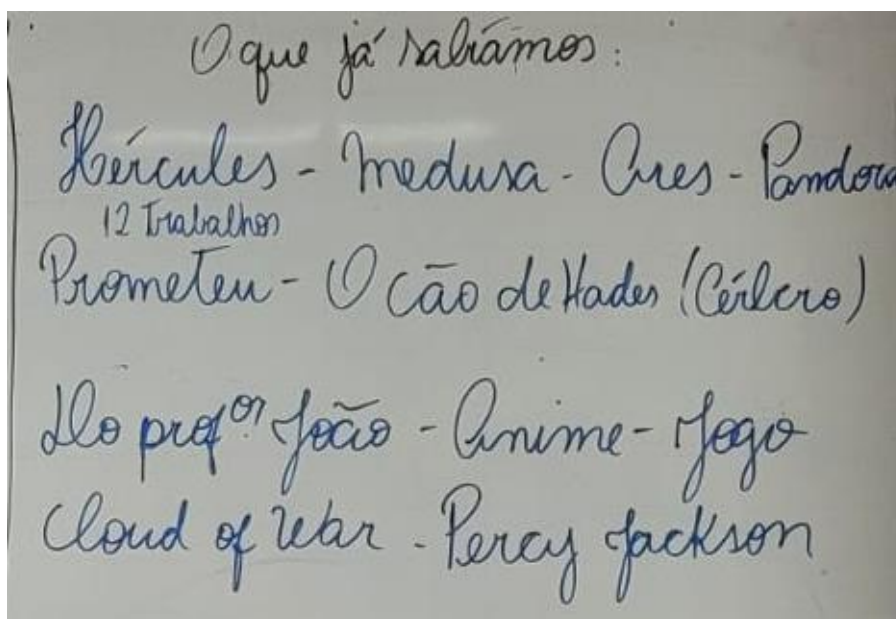 O que já sabíamos:
Hércules - Medusa - Ares - Pandora
12 Trabalhos
Prometeu - O cão de Hades (Cérbero)
Do prof.or João - Anime - Jogo
Cloud of War - Percy Jackson